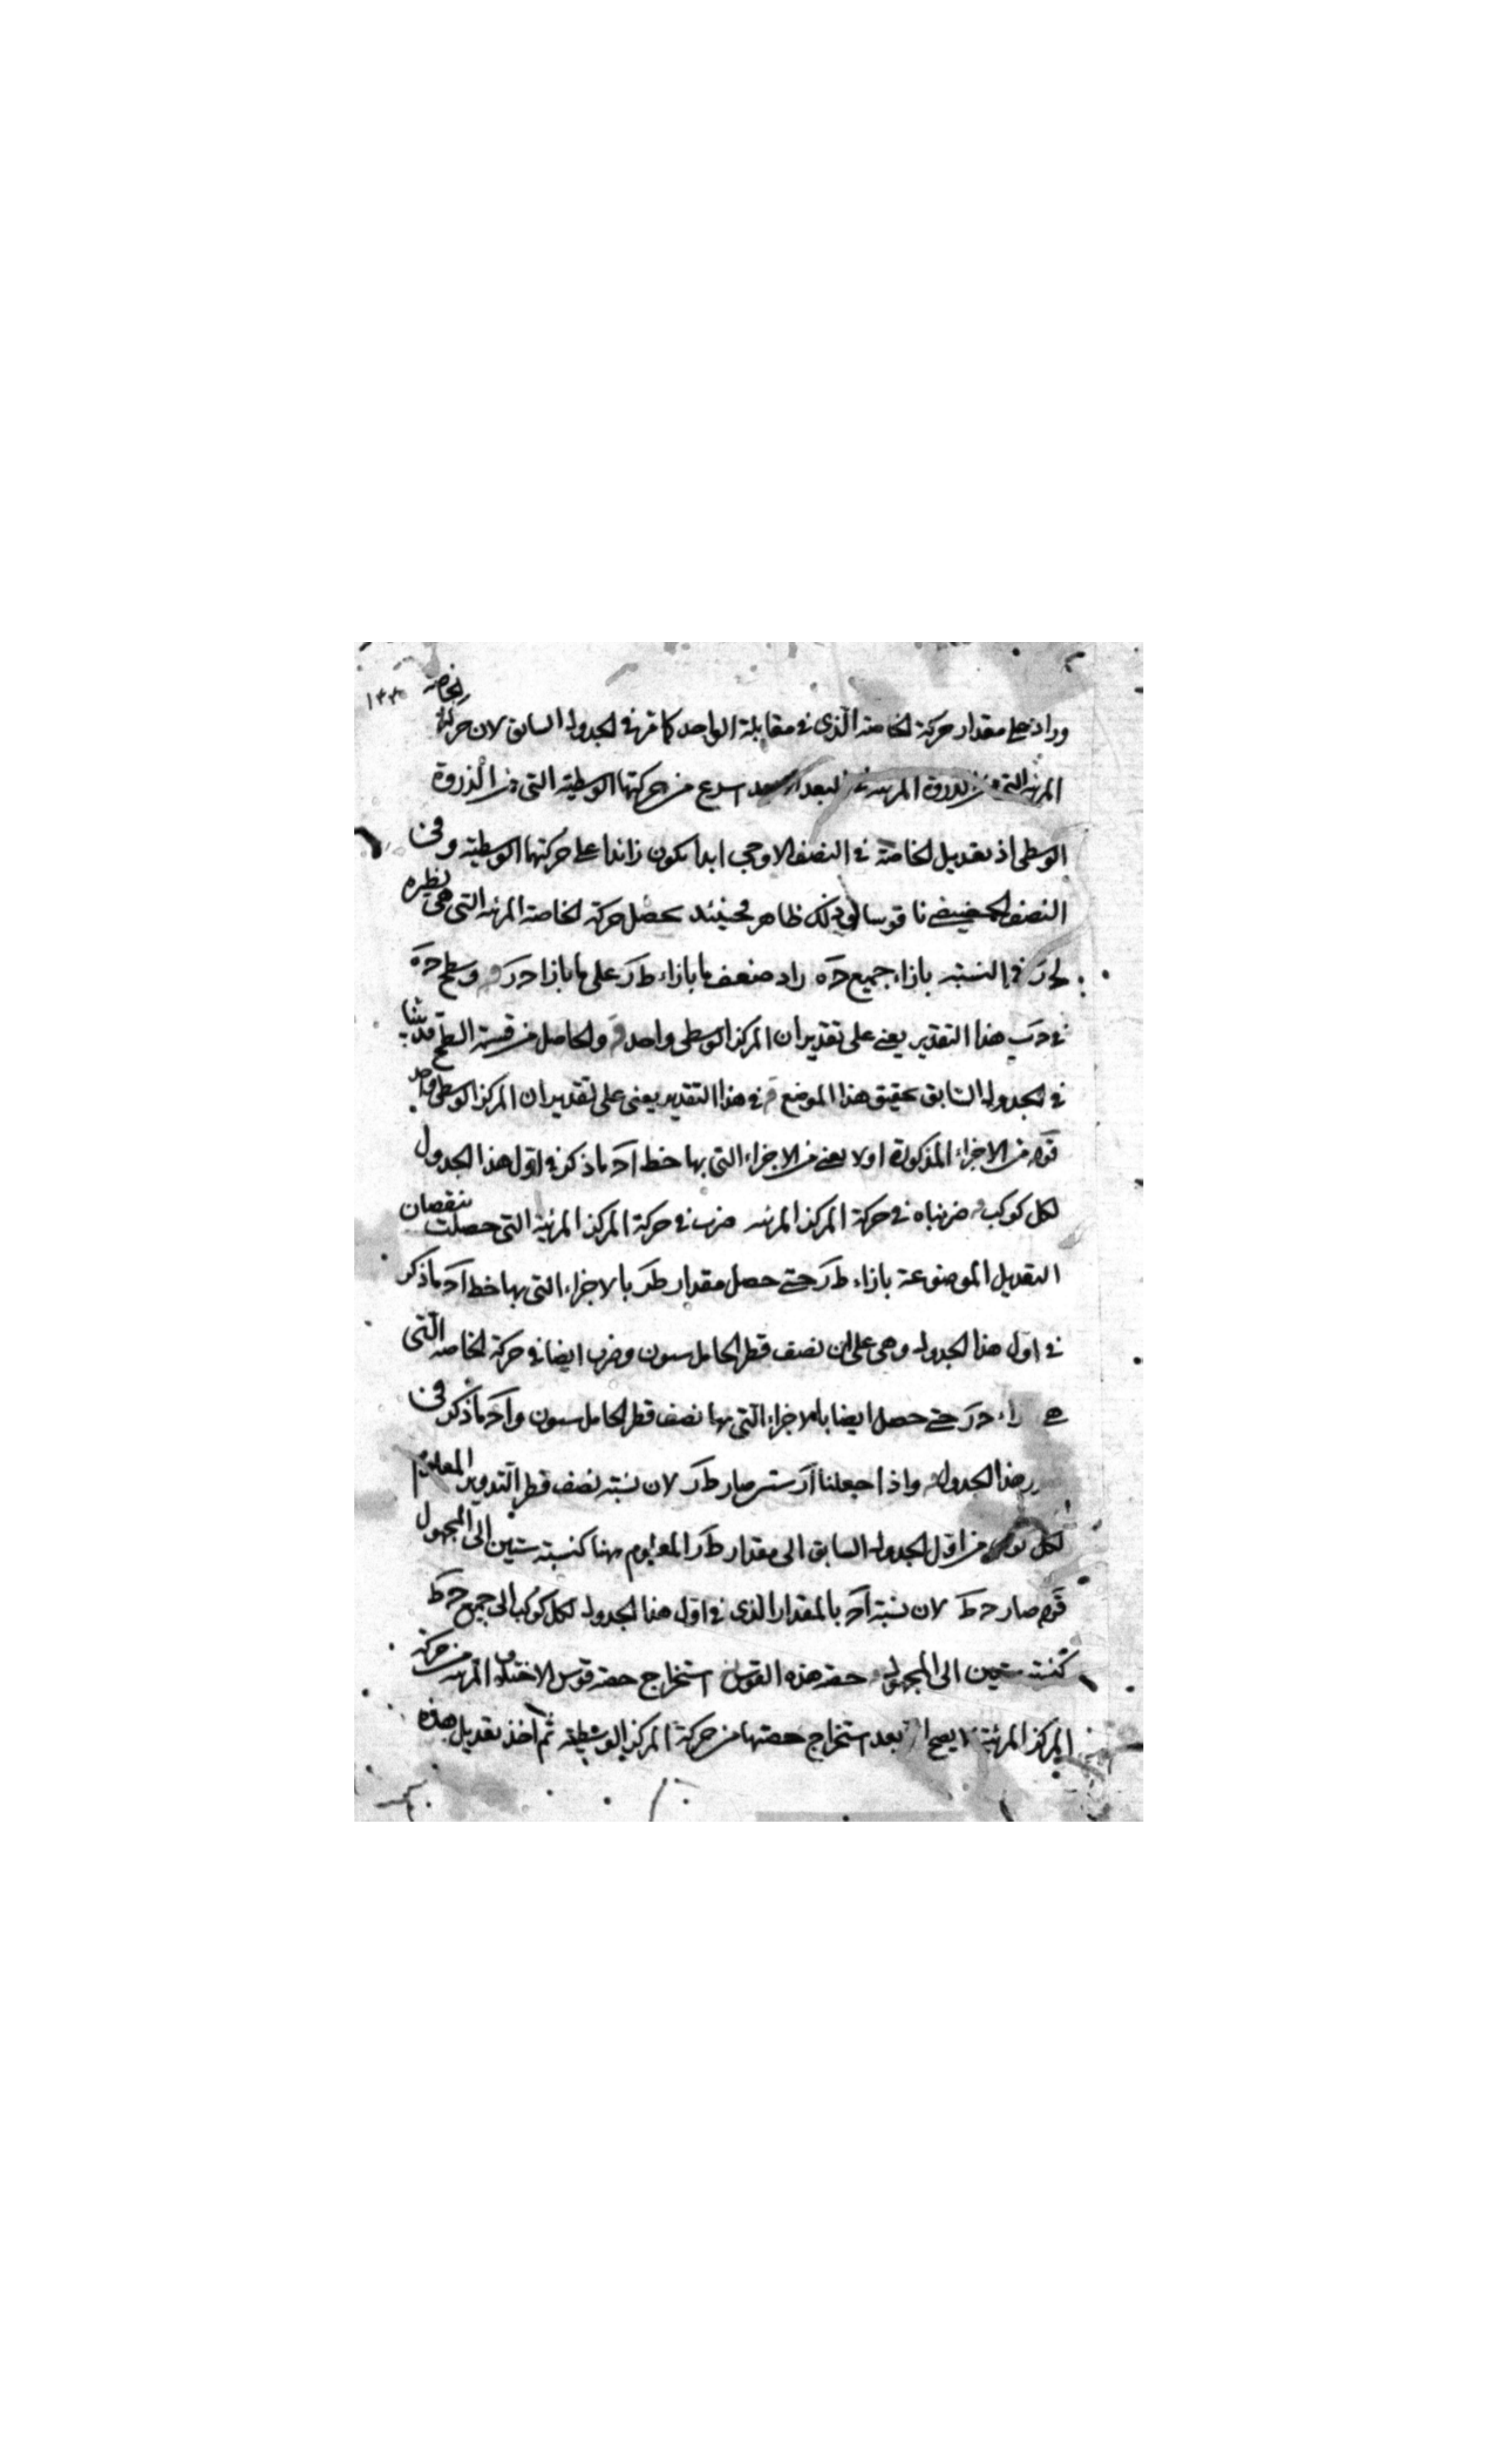 ١٣٣
وزاد على مقدار حركة الخاصة الذى فى مقابلة الواحد كما مر فى الجدول السابق لان حركة الخاصة
المرئية التى من الذروة المرئية فى البعد الابعد اسرع من حركتها الوسطية التى من الذروة
الوسطى اذ تعديل الخاصة فى النصف الاوجى ابدا يكون زائدا على حركتها الوسطية وفى
النصف الحضيضى ناقصا وذلك ظاهر فحينئذ يحصل حركة الخاصة المرئية التى هى نظيره
لحر فى النسبة بازاء جميع حه زاد ضعف ما بازاء طر على ما بازا حر وسطح حه
فى حب هذا التقدير يعنى على تقدير ان المركز الوسطى واحد والحاصل من قسمة السطح قد بينا
فى الجدول السابق تحقيق هذا الموضع فى هذا التقدير يعنى على تقدير ان المركز الوسطى واحد
قوله من الاجزاء المذكورة اولا يعنى من الاجزاء التى بها خط اد ما ذكر فى اول هذا الجدول
لكل كوكب ضربناه فى حركة المركز المرئية ضرب فى حركة المركز المرئية التى حصلت بنقصان
التعديل الموضوعة بازاء طر حتى حصل مقدار طر بالاجزاء التى بها خط اد ما ذكر
فى اول هذا الجدول وهى على ان نصف قطر الحامل ستون وضرب ايضا فى حركة الخاصة التى
هى حر حتى حصل ايضا بالاجزاء التى بها نصف قطر الحامل ستون واد ما ذكر فى
هذا الجدول واذا جعلنا ار ستين صار طر لان نسبة نصف قطر التدوير المعلوم
لكل من اول الجدول السابق الى مقدار طر المعلوم ههنا كنسبة ستين الى المجهول
قوله صار حط لان نسبة اد بالمقدار الذى فى اول هذا الجدول لكل كوكب الى جميع حط
كنسبة ستين الى المجهول حصة هذه القوس استخراج حصة قوس الاختلاف المرئية من حركة
المركز المرئية لا يصح الا بعد استخراج حصتها من حركة المركز الوسطية ثم اخذ تعديل هذه